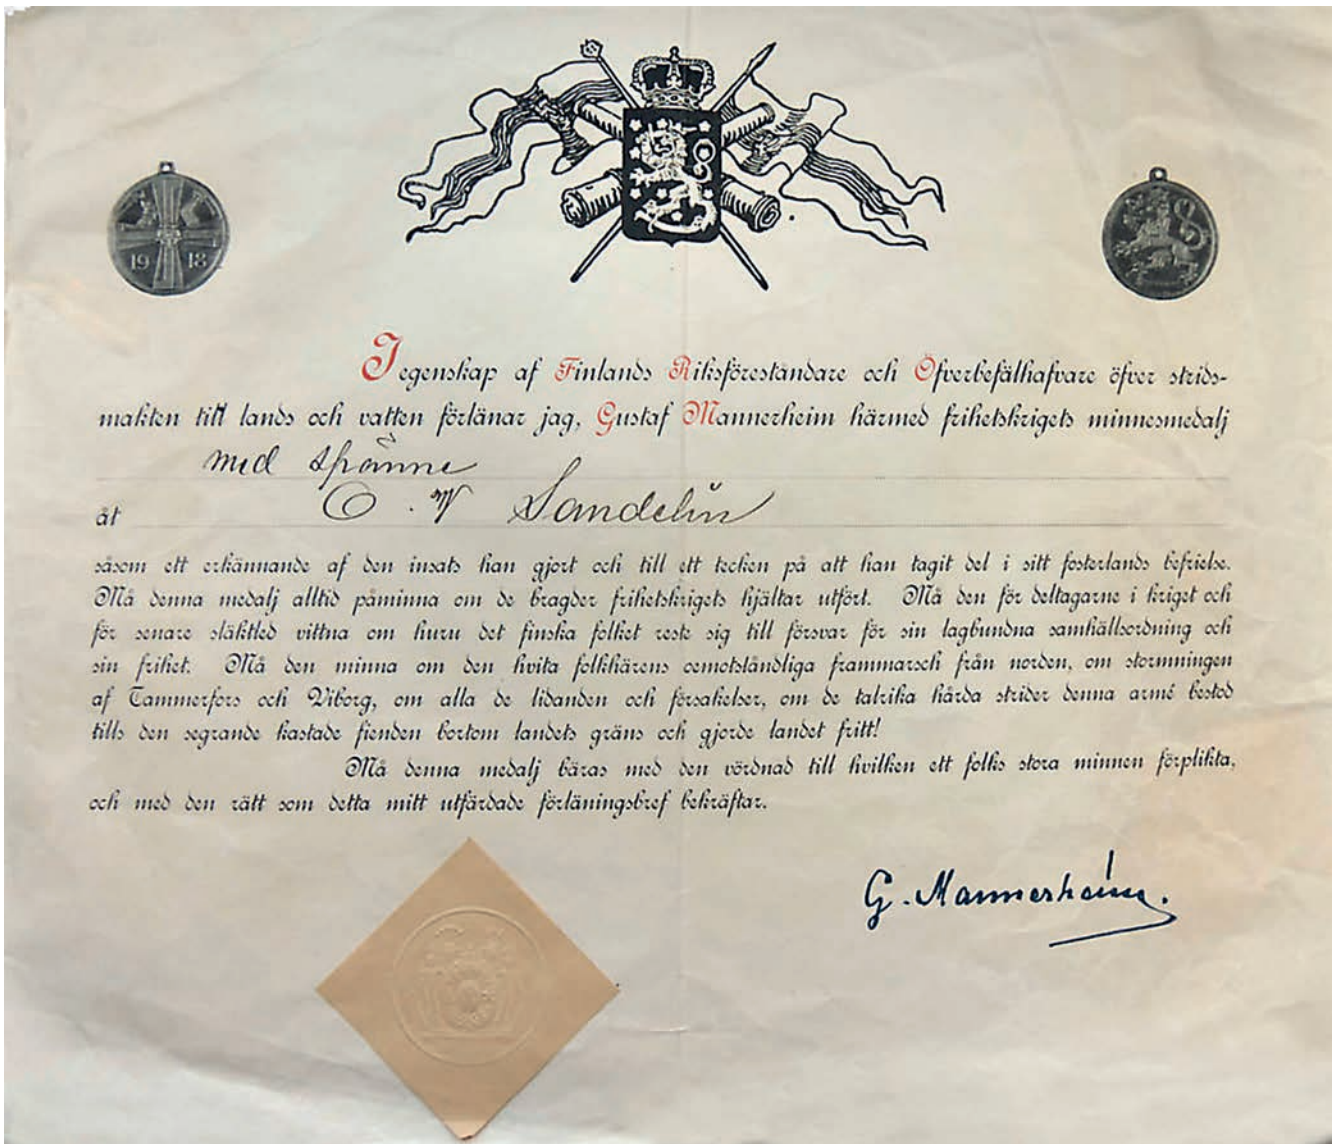 19 18
I egenskap af Finlands Riksföreståndare och Öfverbefälhafvare öfver strids-
makten till lands och vatten förlänar jag, Gustaf Mannerheim härmed frihetskrigets minnesmedalj
med spänne
åt O. W Sandelin
såsom ett erkännande af den insats han gjort och till ett tecken på att han tagit del i sitt fosterlands befrielse.
Må denna medalj alltid påminna om de bragder frihetskrigets hjältar utfört. Må den för deltagarne i kriget och
för senare släktled vittna om huru det finska folket reste sig till försvar för sin lagbundna samhällsordning och
sin frihet. Må den minna om den hvita folkhärens oemotståndliga frammarsch från norden, om stormningen
af Tammerfors och Viborg, om alla de lidanden och försakelser, om de talrika hårda strider denna armé bestod
tills den segrande kastade fienden bortom landets gräns och gjorde landet fritt!
Må denna medalj bäras med den vördnad till hvilken ett folks stora minnen förplikta,
och med den rätt som detta mitt utfärdade förläningsbref bekräftar.
G. Mannerheim.